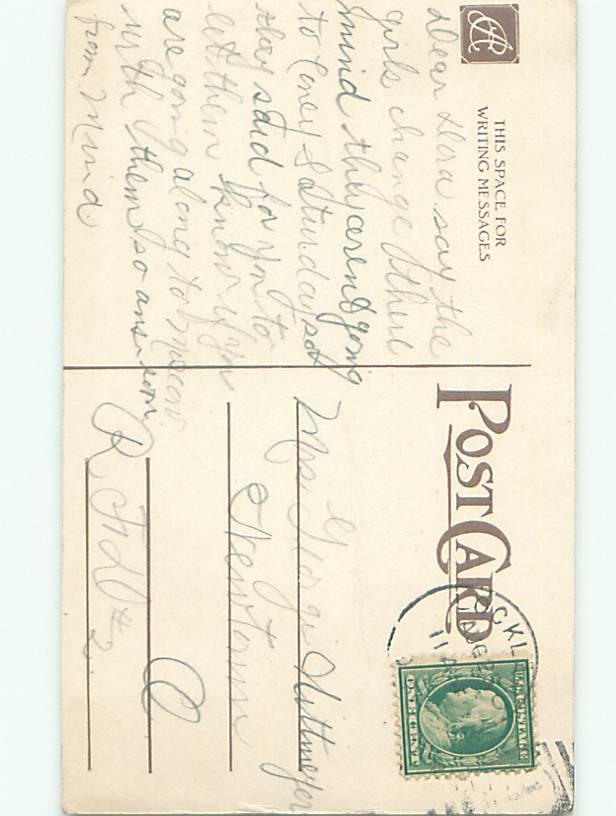 THIS SPACE FOR
WRITING MESSAGES
Dear Dora say the
girls change there
mind they arent going
to Coney Saturday so
they said for you to
let them know if you
are going along to
with them so answer
from Mind
POST CARD
CKL
AUG 2
11 A
U.S. POSTAGE
ONE CENT
Mrs. George Wittmeyer
Newtown
O
R F D # 2.